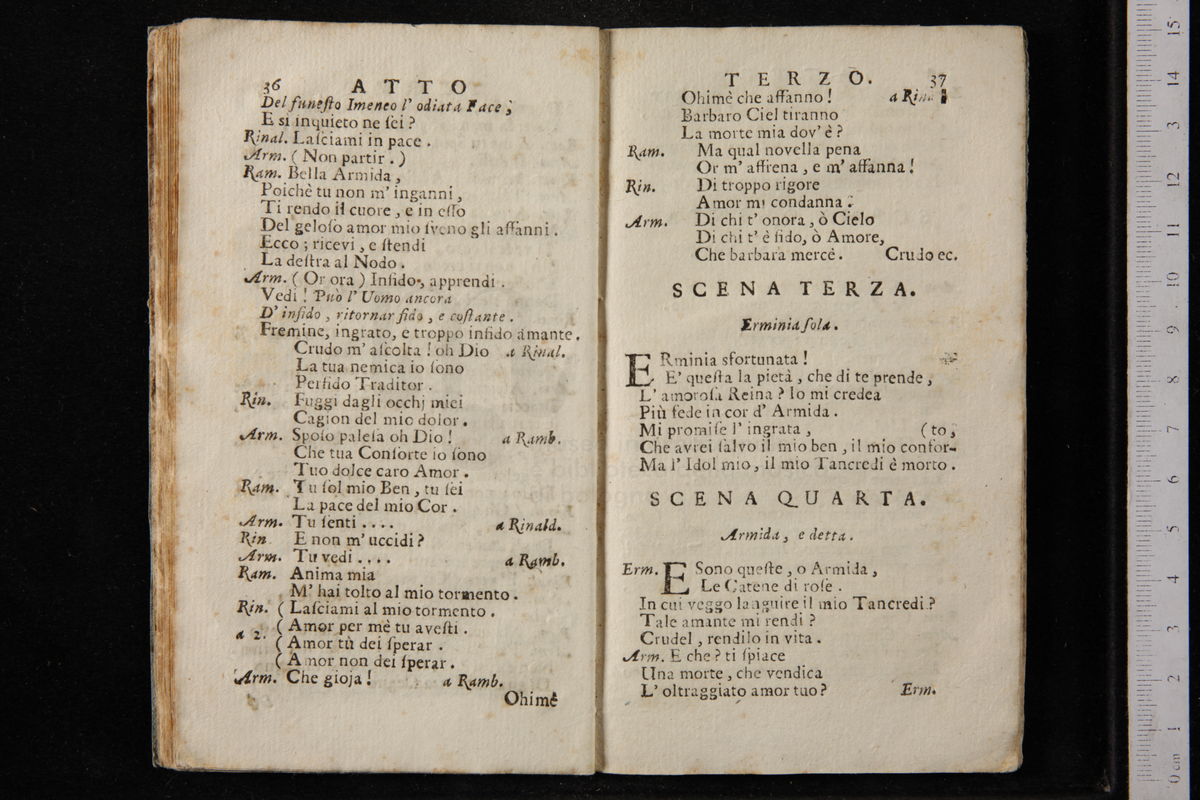 36 ATTO
Del funeſto Imeneo l' odiata Face;
E si inquieto ne ſei?
Rinal. Laſciami in pace.
Arm. (Non partir.)
Ram. Bella Armida,
Poichè tu non m' inganni,
Ti rendo il cuore, e in eſſo
Del geloſo amor mio ſveno gli affanni.
Ecco; ricevi, e ſtendi
La deſtra al Nodo.
Arm. (Or ora) Infido, apprendi.
Vedi! Può l' Uomo ancora
D' infido, ritornar fido, e coſtante.
Fremine, ingrato, e troppo infido amante.
Crudo m' aſcolta! oh Dio a Rinal.
La tua nemica io ſono
Perfido Traditor.
Rin. Fuggi dagli occhj miei
Cagion del mio dolor.
Arm. Spoſo paleſa oh Dio! a Ramb.
Che tua Conſorte io ſono
Tuo dolce caro Amor.
Ram. Tu ſol mio Ben, tu ſei
La pace del mio Cor.
Arm. Tu ſenti .... a Rinald.
Rin E non m' uccidi?
Arm. Tu vedi .... a Ramb.
Ram. Anima mia
M' hai tolto al mio tormento.
Rin. (Laſciami al mio tormento.
a 2. (Amor per mè tu aveſti.
(Amor tù dei ſperar.
(Amor non dei ſperar.
Arm. Che gioja! a Ramb.
Ohimè
TERZO. 37
Ohimè che affanno! a Rina
Barbaro Ciel tiranno
La morte mia dov' è?
Ram. Ma qual novella pena
Or m' affrena, e m' affanna!
Rin. Di troppo rigore
Amor mi condanna.
Arm. Di chi t' onora, ò Cielo
Di chi t' è fido, ò Amore,
Che barbara mercè. Crudo ec.
SCENA TERZA.
Erminia ſola.
ERminia sfortunata!
E' queſta la pietà, che di te prende,
L' amoroſa Reina? Io mi credea
Più fede in cor d' Armida.
Mi promiſe l' ingrata, (to,
Che avrei ſalvo il mio ben, il mio confor-
Ma l' Idol mio, il mio Tancredi è morto.
SCENA QUARTA.
Armida, e detta.
Erm. E Sono queſte, o Armida,
Le Catene di roſe.
In cui veggo languire il mio Tancredi?
Tale amante mi rendi?
Crudel, rendilo in vita.
Arm. E che? ti ſpiace
Una morte, che vendica
L' oltraggiato amor tuo? Erm.
15
14
13
12
11
10
9
8
7
6
5
4
3
2
1
0 cm